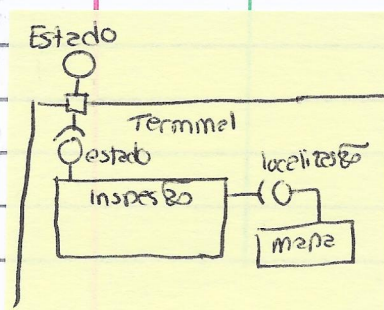 Estado
Terminal
estado
localização
inspeção
mapa